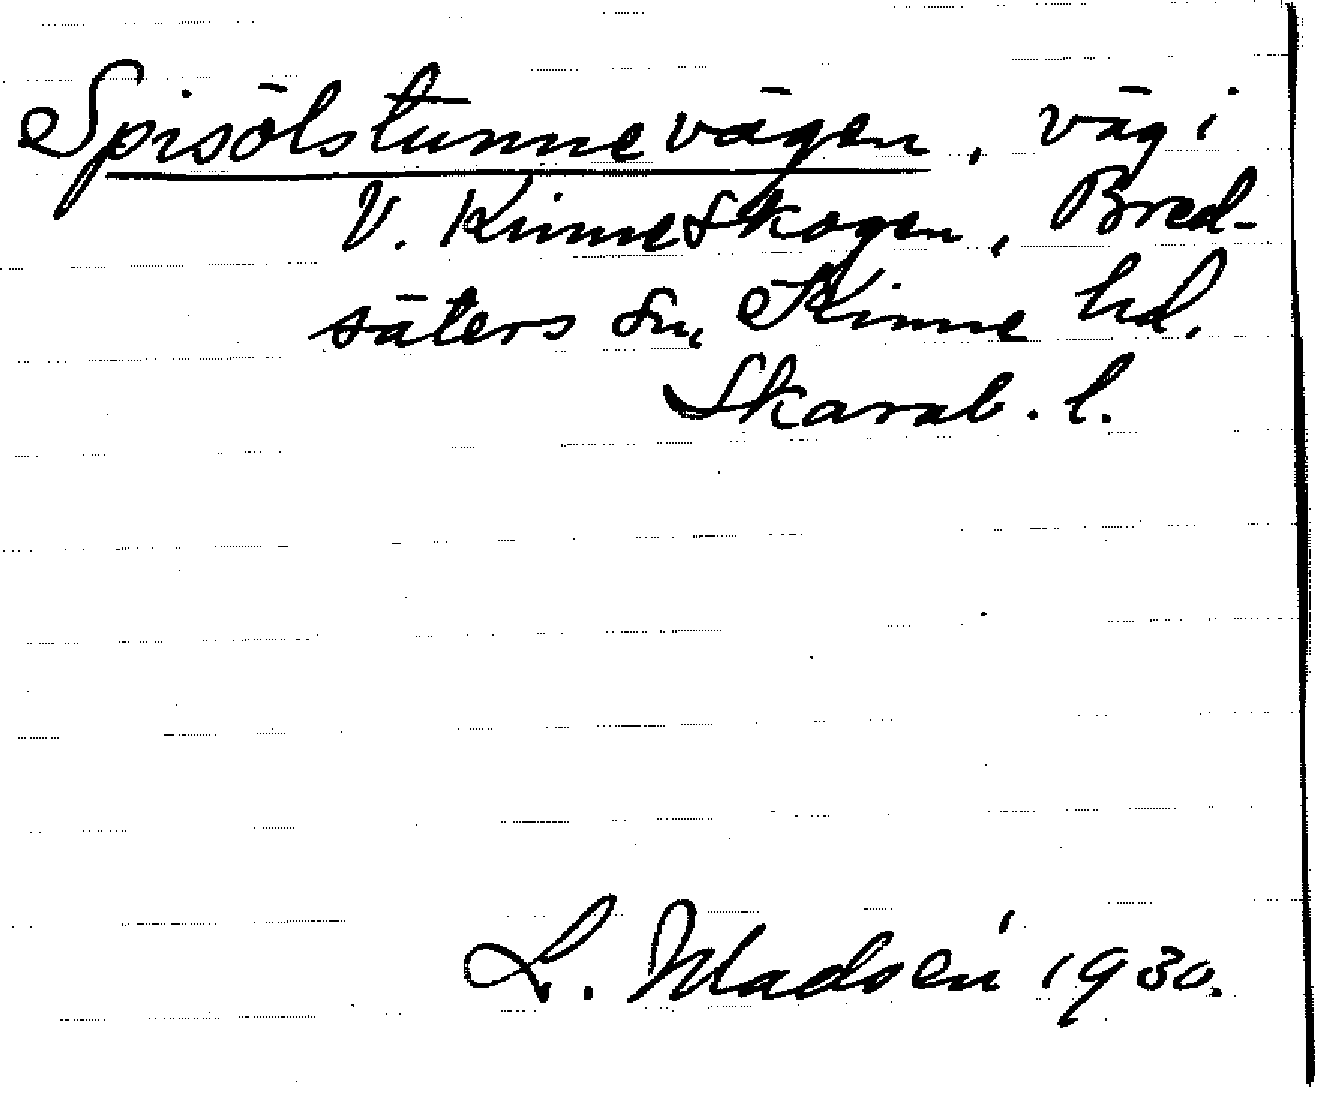 Spisölstunnevägen, väg i
V. Kinneskogen, Bred-
säters sn, Kinne hd.
Skarab. l.
L. Madsén 1930.